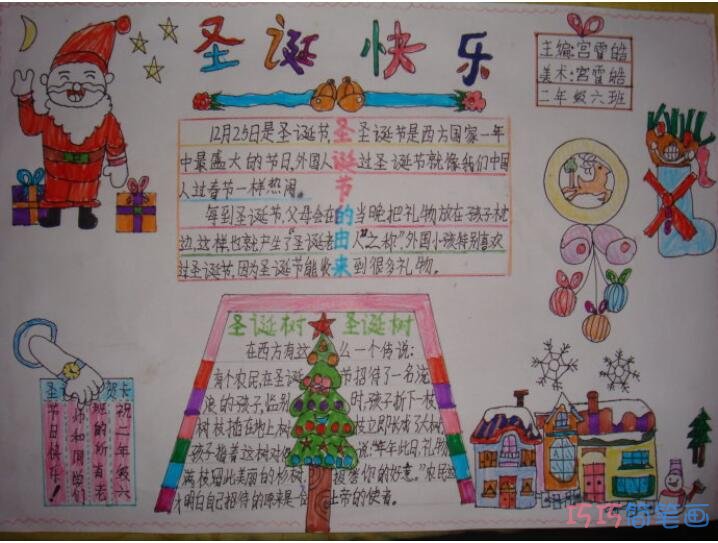 圣诞快乐
主编:宫雪皓
美术:宫雪皓
二年级六班
圣诞节的由来
12月25日是圣诞节,圣诞节是西方国家一年
中最盛大的节日,外国人过圣诞节就像我们中国
人过春节一样热闹。
每到圣诞节,父母会在当晚把礼物放在孩子枕
边,这样,也就产生了“圣诞老人”之称”,外国小孩特别喜欢
过圣诞节,因为圣诞节能收到很多礼物。
圣诞树 圣诞树
在西方有这么一个传说:
有个农民,在圣诞节招待了一名流
浪的孩子,临别时,孩子折下一枝
树枝插在地上树枝立即长成了大树
孩子指着这树对他说:“年年此日,礼物
满枝留此美丽的杉树报答你的好意。”农民这
才明白自己招待的原来是个上帝的使者。
圣 贺卡
祝二年级六
班的所有老
师和同学们
节日快乐!
巧巧简笔画